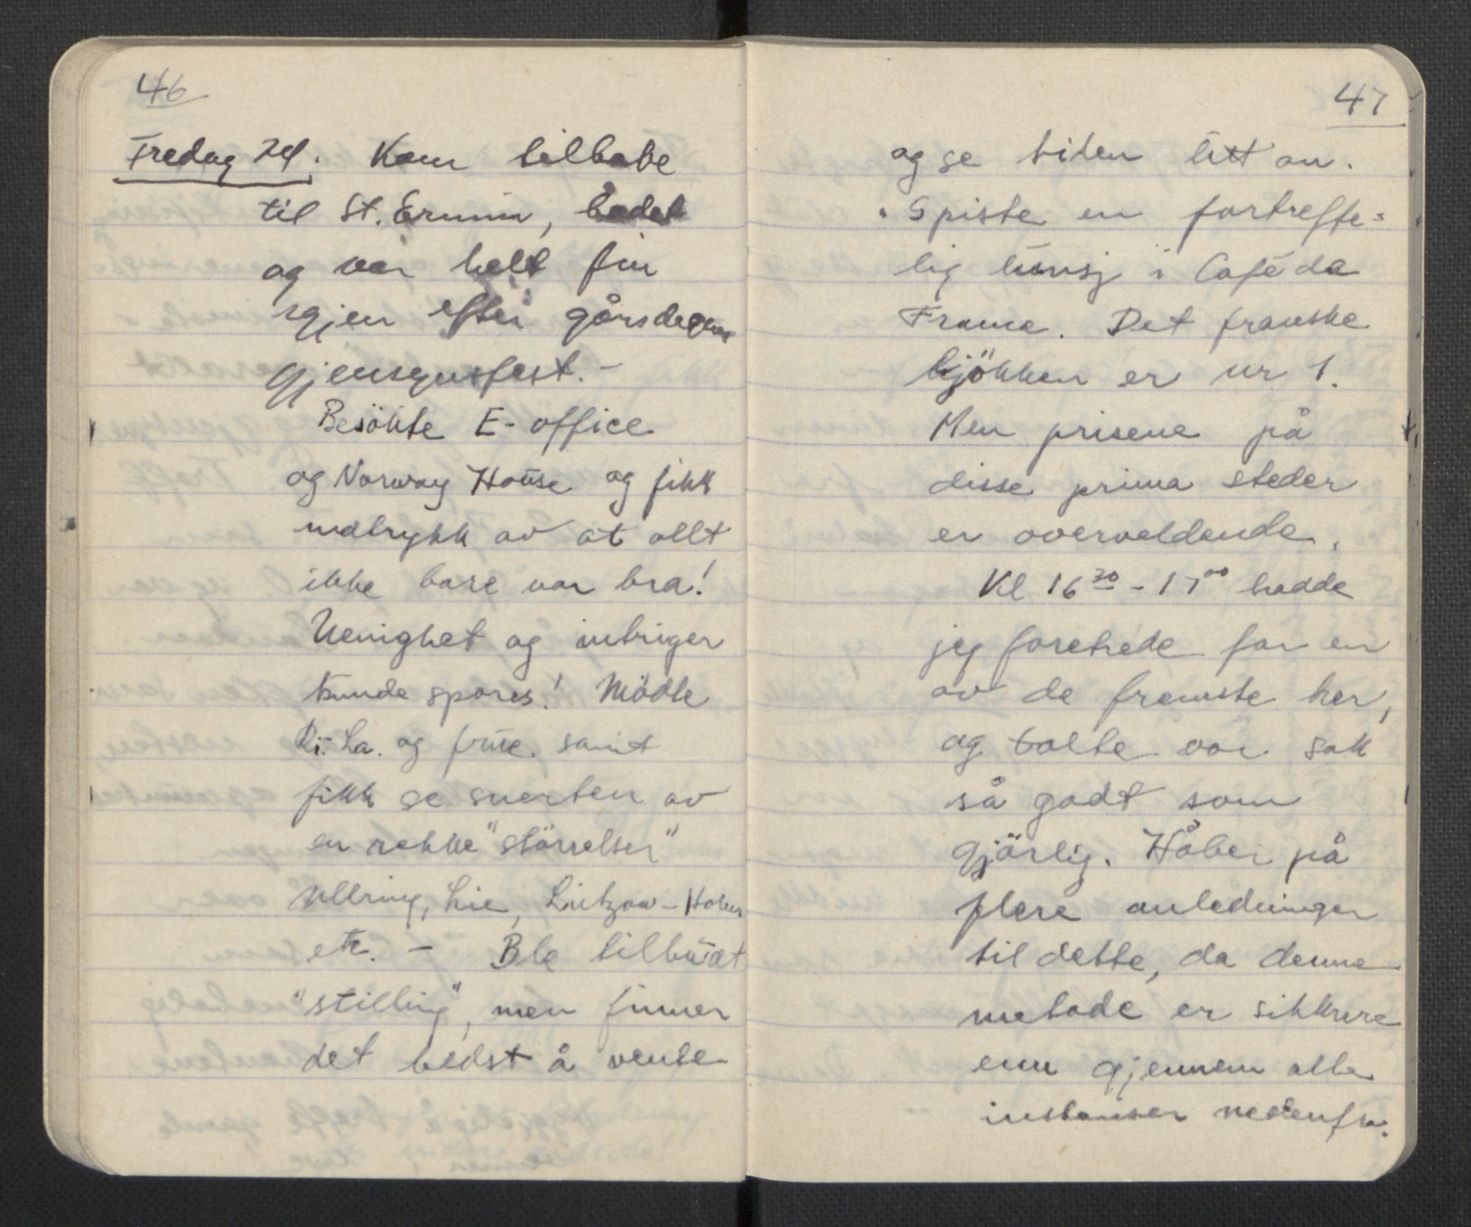 46
Fredag 24. Kom tilbake
til St. Ermin, badet
og var helt fin
igjen efter gårsdagens
gjensynsfest. -
Besökte E-office
og Norway House og fikk
indtrykk av at allt
ikke bare var bra!
Uenighet og intriger
kunde spores! Mödte
Ri-La. og frue. samt
fikk se snerten av
en rekke "störrelser"
Ullring, Lie, Lützow-Holm
etc. - Ble tilbudt
"stilling", men finner
det bedst å vente
47
og se tiden litt an.
Spiste en fortreffe=
lig lunsj i Café de
France. Det franske
kjökken er nr 1.
Men prisene på
disse prima steder
er overveldende.
Kl 16 30 - 17 00 hadde
jeg foretrede for en
av de fremste her,
og talte vor sak
så godt som
gjörlig. Håber på
flere anledninger
til dette, da denne
metode er sikkrere
enn gjennem alle
instanser nedenfra.